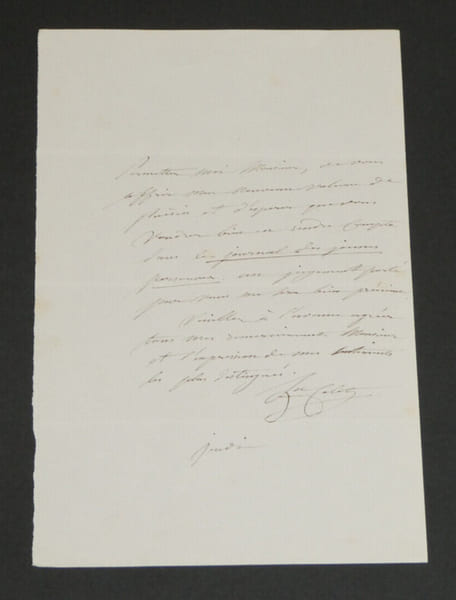 Permettez moi Monsieur, de vous
offrir mon nouveau volume de
et d'espérer que vous
voudrez bien en rendre compte
dans le journal des jeunes
personnes, un jugement porté
par vous me sera bien précieux.
Veuillez à l'avance agréer
tous mes remerciements Monsieur
et l'expression de mes sentiments
les plus distingués.
Colet
jeudi